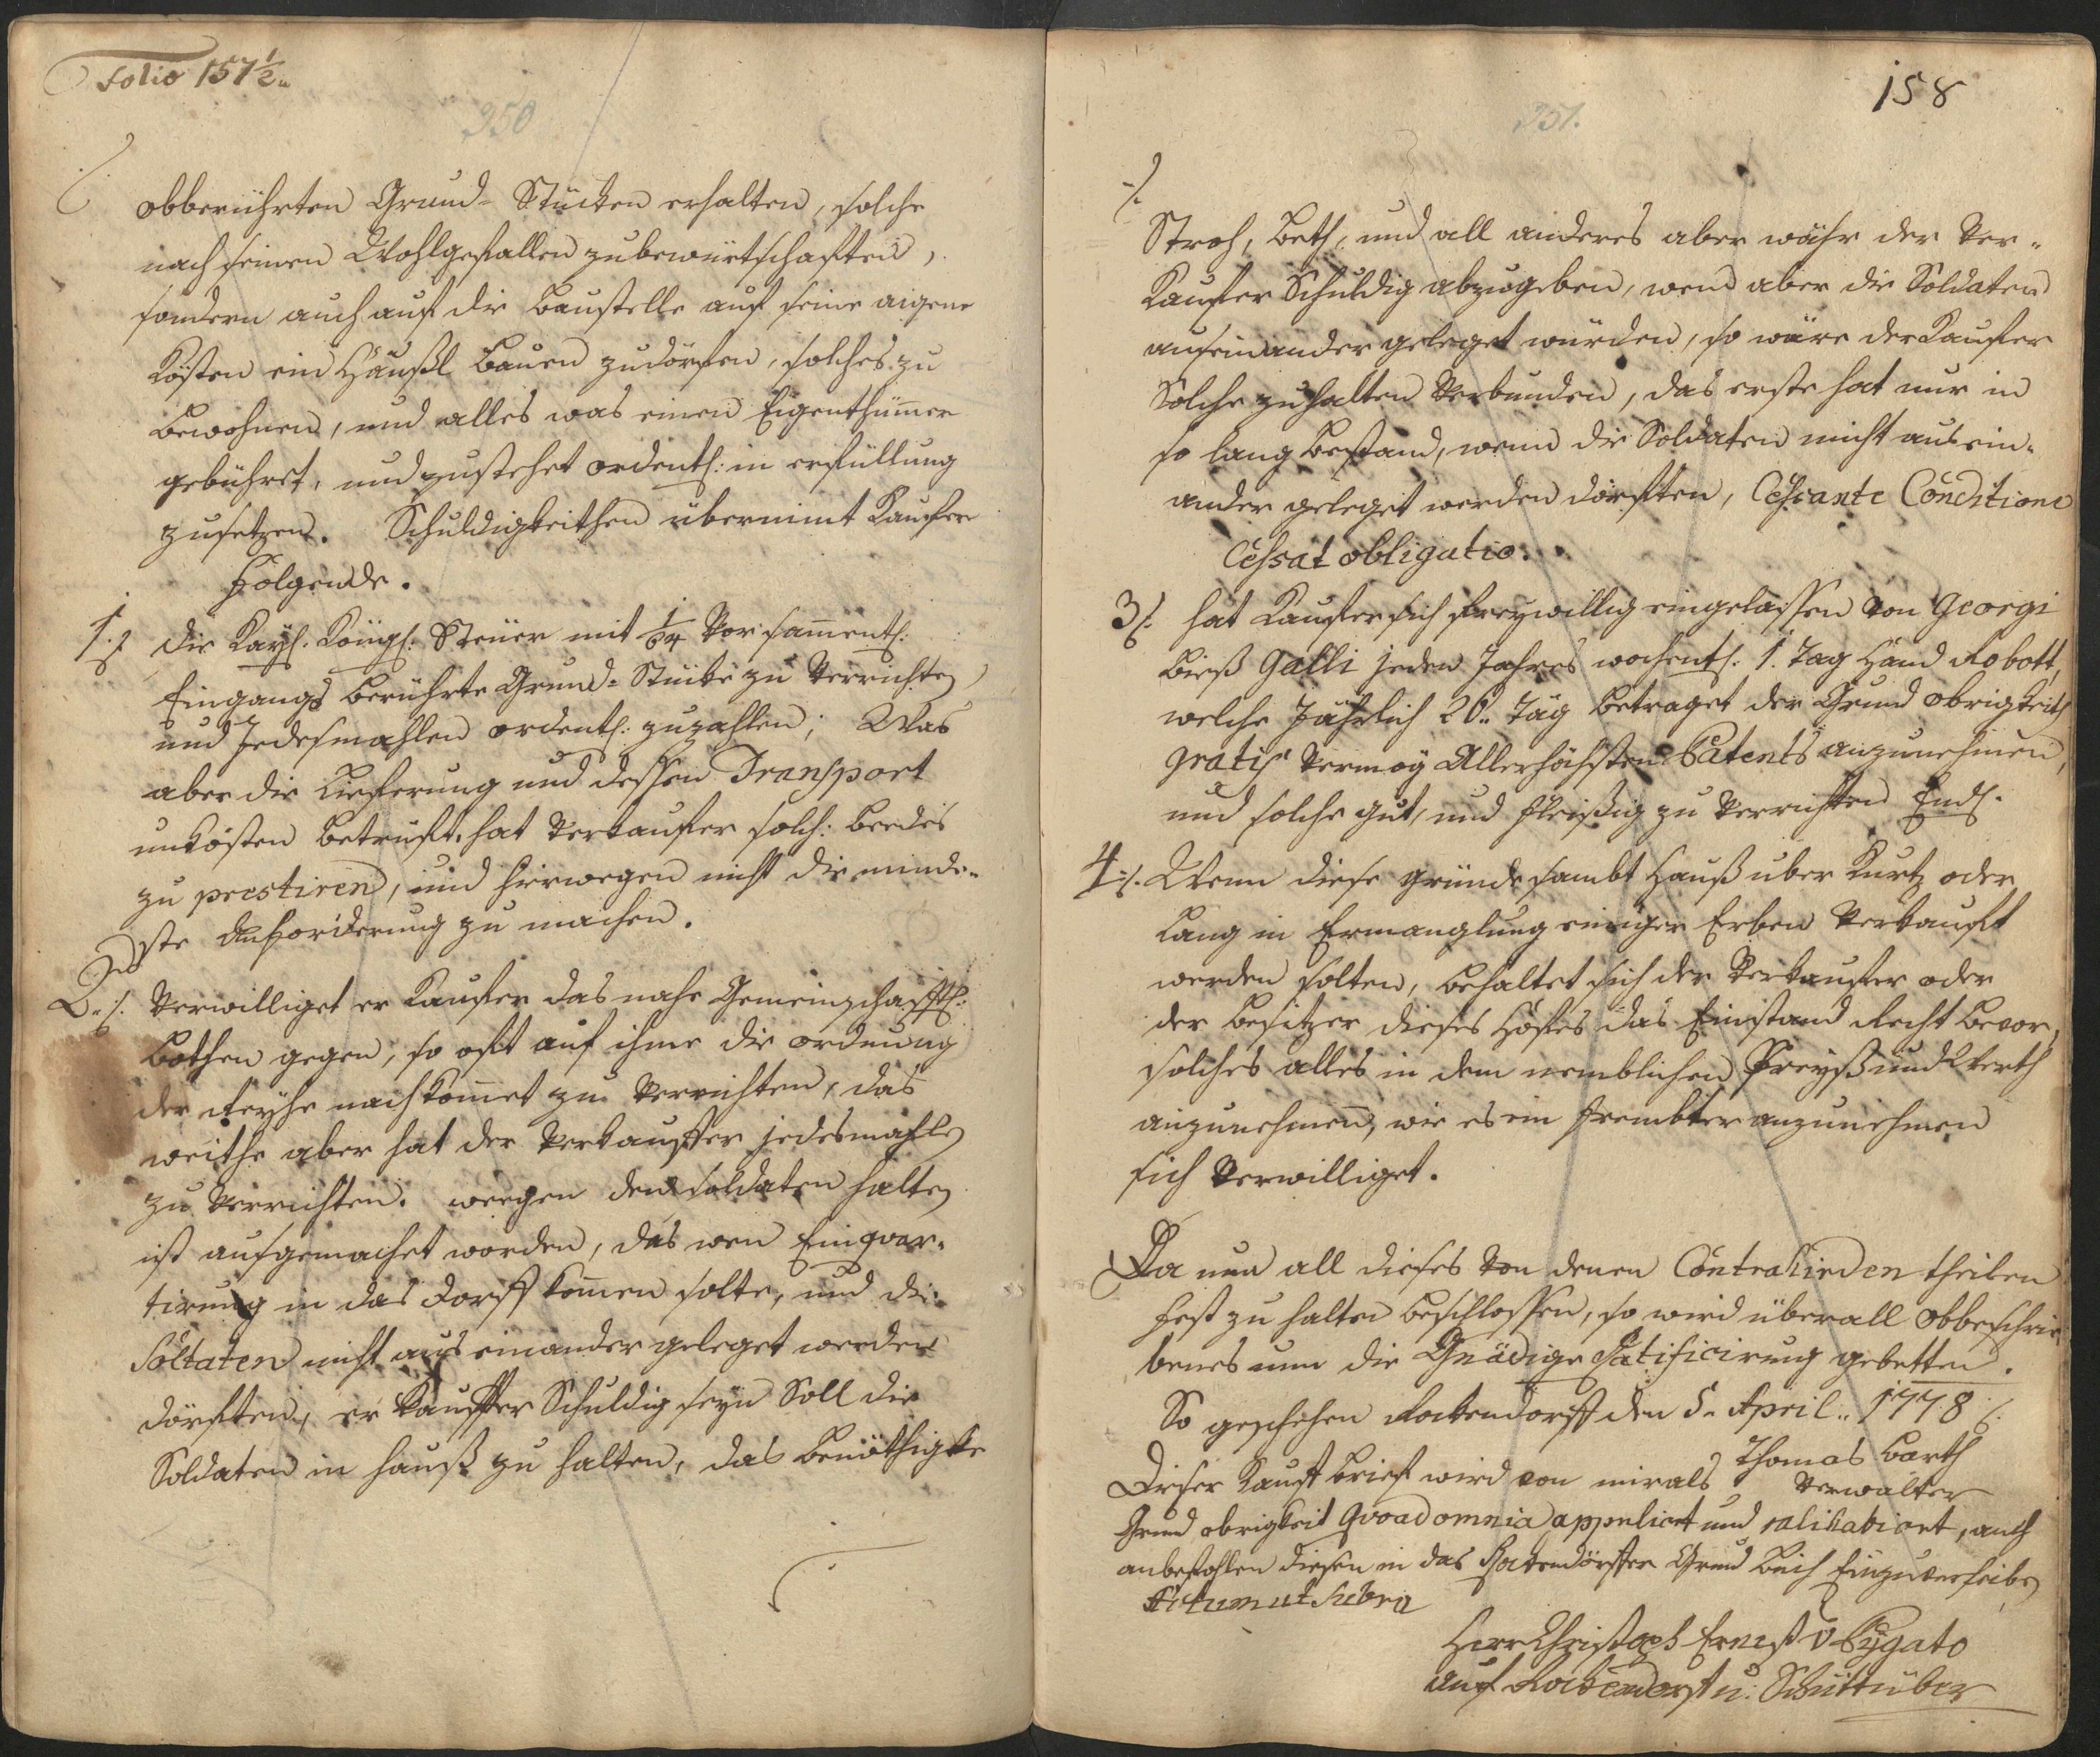 Folio 157½..
350
obberührten Grund-Stücken erhalten, solche
nach seinen Wohlgefallen zubewürtschaften,
sondern auch auf die Baustelle auf seine aigene
Kösten ein Häußl Bauen zudörfen, solches zu
bewohnen, und alles was einen Eigenthümmer
gebühret, und zustehet ordentl: in erfüllung
zusetzen. Schuldigkeithen übernimt Kauffer
Folgende.
1./. die Kayl. Köngl: Steüer mit 1/64 Vor sammentl:
Eingangs berührte Grund-Stücke zu Verrichten
und Jedesmahlen ordentl: zuzahlen; Was
aber die Lieferung und dessen Transport
unkösten betrüft, hat Verkaufer solch: beedes
zu prestiren, und hierwegen nicht die minde-
ste Anforderung zu machen.
2../. Verwilliget er Kaufer das nahe Gemeinschafftl:
Bothen gegen, so oft auf ihme die ordnung
der Reyhe nachkommet zu Verrichten, das
weithe aber hat der Verkauffer jedesmahle
zu Verrichten. wegen den soldaten halten
ist ausgemachet worden, das wen Einquar-
tirung in das Dorff kommen solte, und die
Soltaten nicht aus einander geleget werden
dörften, er Kauffer Schuldig seyn Soll die
Soldaten in hauß zu halten, das benöthigte
158
351.
./.
Stroh, Beth, und all anderes aber währ der Ver-
Kaufer Schuldig abzugeben, wend aber die Soldaten
auseinander geleget würden, so wäre der Kaufer
Solche zuhalten Verbunden, das erste hat nur in
so lang bestand, wenn die Soldaten nicht aus ein-
ander geleget werden dörften, Cessante Conditione
Cessat obligatio.
3/. hat Kaufer sich freywillig eingelassen von Georgi
bieß Galli jeden Jahres wochentl. 1. Tag Hand Robott,
welche Jährlich 26.. Täg betraget der Grund obrigkeith
gratis Vermög Allerhöchsten Patents anzunehmen,
und solche gut, und fleißig zu Verrichten Endl.
4./. Wenn diese gründe sambt Hauß über Kurtz oder
Lang in Ermanglung einiger Erben Verkauft
werden solten, behaltet sich der Verkaufer oder
der besitzer dieses Hofes das Einstand Recht bevor,
solches alles in dem nemblichen Preyß und Werth
anzunehmen, wie es ein frembter anzunehmen
sich Verwilliget.
Da nun all dieses Von denen Contrahirden theilen
fest zu halten beschlossen, so wird überall obbeschrie
benes umm die Gnädige Ratificirung gebetten.
So geschehen Rokendorff den 5. April.. 1778
Thomas Barth
Verwalter
Dieser Kauff brief wird von mir als
Grund obrigkeit Quoad omnia applicirt und ratihabiert, auch
anbefohlen diesen in das Rokendörffer Grund Buch Einzuverleiben
Actum ut Supra
Herr Christoph Ernest v.
auf Rockendorf u: Schüttüber